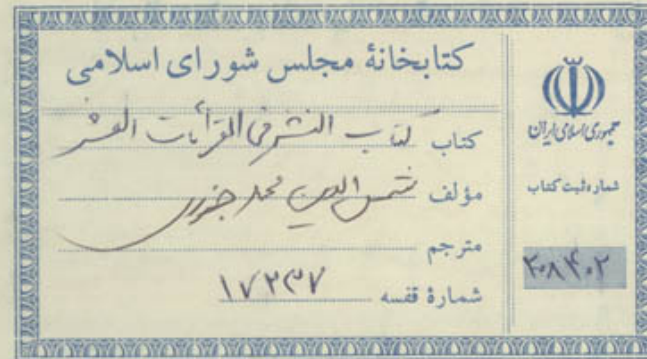 کتابخانهٔ مجلس شورای اسلامی
کتاب کتاب النشر فی القرأات العشر
مؤلف شمس الدین محمد جزری
مترجم
شمارهٔ قفسه ۱۷۲۳۷
جمهوری اسلامی ایران
شماره ثبت کتاب
۲۰۸۴۰۲